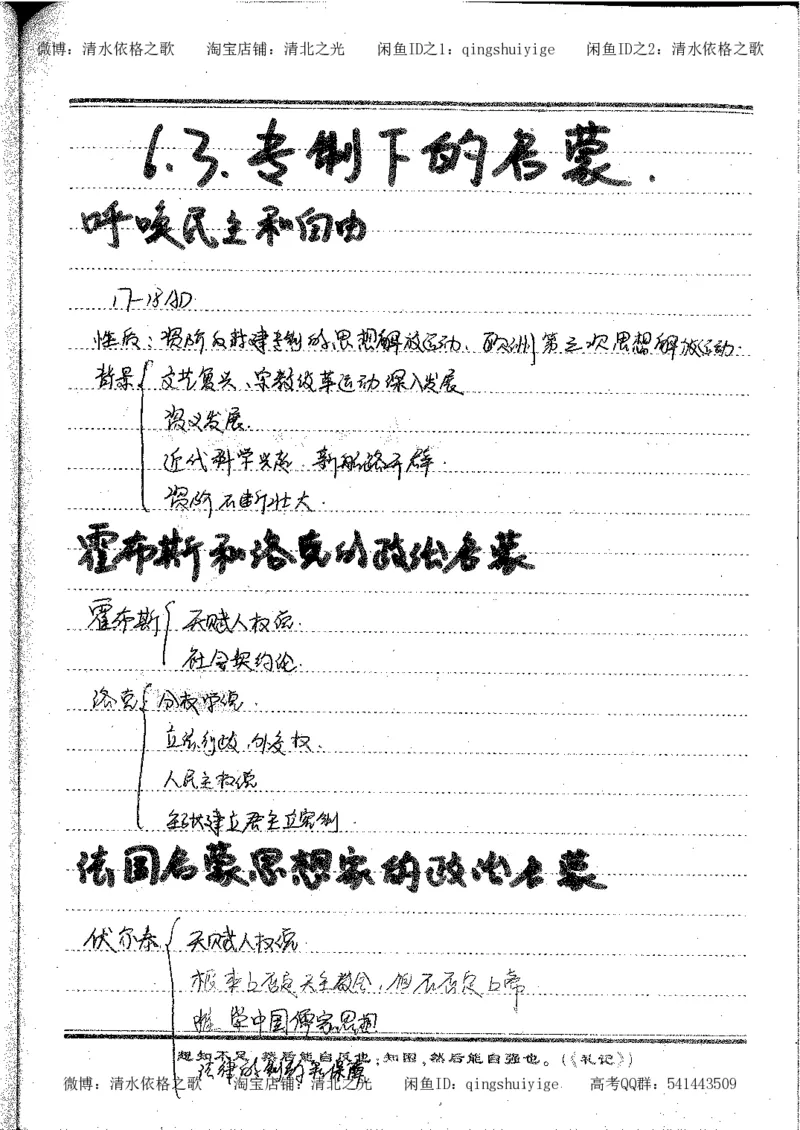 微博：清水依格之歌 淘宝店铺：清北之光 闲鱼ID之1：qingshuiyige 闲鱼ID之2：清水依格之歌
6.3.专制下的启蒙.
呼唤民主和自由
17-18AD
性质：资阶反封建专制的思想解放运动、欧洲第二次思想解放运动.
背景 文艺复兴、宗教改革运动深入发展
资义发展.
近代科学兴起.新航路开辟.
资阶不断壮大.
霍布斯和洛克的政治启蒙
霍布斯 天赋人权说.
社会契约论.
洛克 分权学说.
立法行政、外交权.
人民主权说
主张建立君主立宪制.
法国启蒙思想家的政治启蒙
伏尔泰 天赋人权说.
根本上否定天主教会，但不否定上帝
推崇中国儒家思想
知不足，然后能自反也；知困，然后能自强也。（《礼记》）
法律的制约和保障
微博：清水依格之歌 淘宝店铺：清北之光 闲鱼ID：qingshuiyige 高考QQ群：541443509